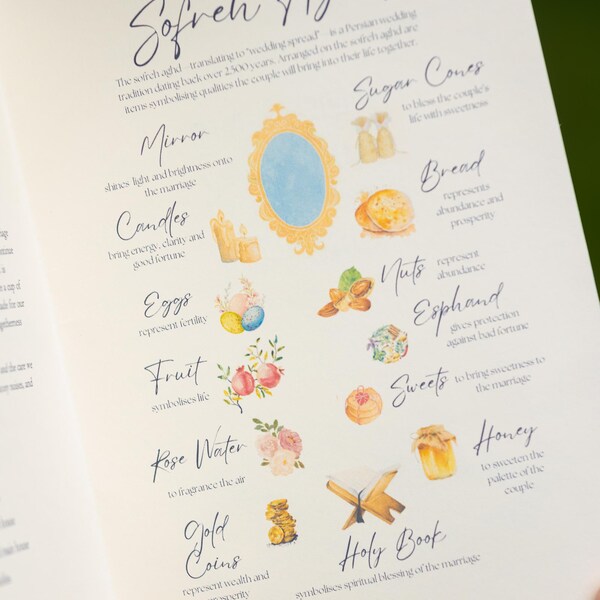 Sofreh
The sofreh aghd – translating to "wedding spread" – is a Persian wedding
tradition dating back over 2,500 years. Arranged on the sofreh aghd are
items symbolising qualities the couple will bring into their life together.
Mirror
shines light and brightness onto
the marriage
Sugar Cones
to bless the couple's
life with sweetness
Candles
bring energy, clarity and
good fortune
Bread
represents
abundance and
prosperity
Eggs
represent fertility
Nuts
represent
abundance
Fruit
symbolises life
Esphand
gives protection
against bad fortune
Sweets
to bring sweetness to
the marriage
Rose Water
to fragrance the air
Honey
to sweeten the
palette of the
couple
Gold
Coins
represent wealth and
prosperity
Holy Book
symbolises spiritual blessing of the marriage